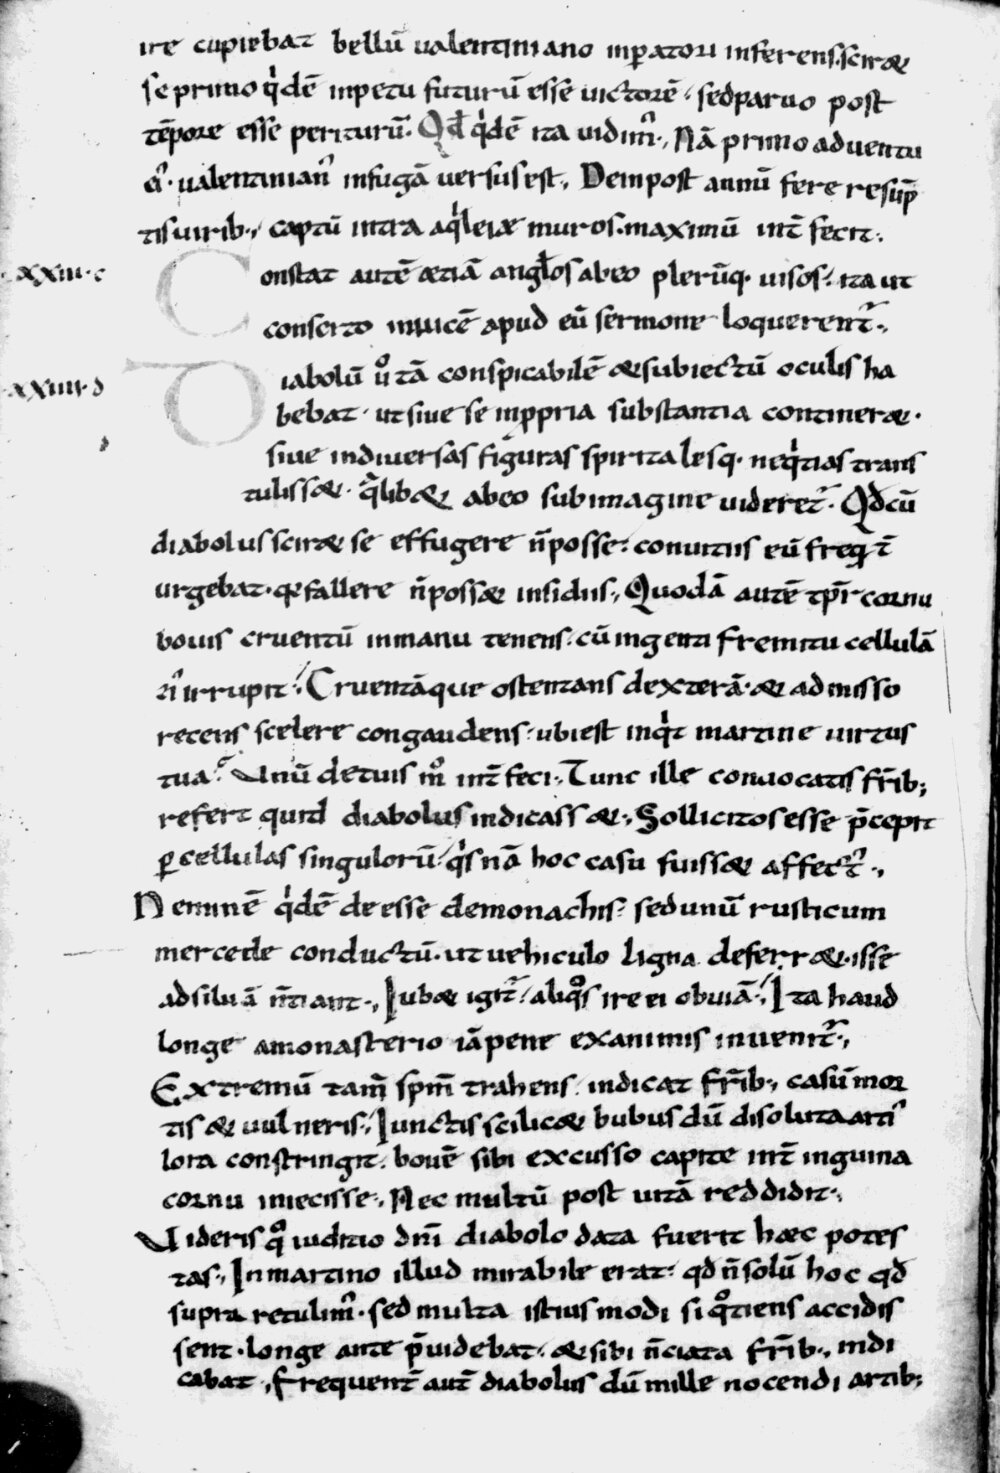 ire cupiebat bellū ualentiniano inꝑatori inferens. scir&
se primo qⁱdē inpetu futurū esse uictorē· sed paruo post
tēpore esse periturū. Qđ qⁱdē ita uidim᷒. Nā primo aduentu
ei᷒· ualentinian᷒ in fugā uersus est, Dein post annū fere resūp
tis uirib; captū intra aqⁱleiæ muros. maximū int̄fecit.
·xxiii·c
Constat autē &iā angłos ab eo plerūq· uisos· ita ut
conserto inuicē apud eū sermone loquerent᷑.
·xxiiii·d
Diabolū uͦ tā conspicabilē & subiectū oculis ha
bebat· ut siue se in ꝓpria substantia continer&·
siue in diuersas figuras spiritalesq· neqⁱtias trans
tuliss&· qͣlib& ab eo sub imagine uideret᷑. Qđ cū
diabolus scir& se effugere n̄ posse· conuitiis eū freqͤnt̄
urgebat· qͤ fallere n̄ poss& insidiis, Quodā autē tp̄r cornu
bouis cruentū in manu tenens· cū ingenti fremitu cellulā
ei᷒ irrupit. Cruentāque ostentans dexterā· & admisso
recens scelere congaudens· ubi est inqⁱt martine uirtus
tua? Unū de tuis mͦ int̄feci. Tunc ille conuocatis fr̄ib;
refert quid diabolus indicass&. Sollicitos esse p̄cepit
ꝑ cellulas singulorū· qⁱsnā hoc casu fuiss& affect᷒.
Neminē qⁱdē deesse de monachis· sed unū rusticum
mercede conductū· ut uehiculo ligna deferr&· isse
ad siluā n̄tiant. Iub& igit᷑ aliqͦs ire ei obuiā. Ita haud
longe a monasterio iā pene exanimis inuenit᷑.
Extremū tam̄ spm̄ trahens indicat fr̄ib; casū mor
tis & uulneris. Iunctis scilic& bubus dū disoluta arti᷒
lora constringit· bouē sibi excusso capite int̄ inguina
cornu iniecisse. Nec multū post uitā reddidit.
Uideris qͦ iuditio dn̄i diabolo data fuerit hæc potes
tas. In martino illud mirabile erat· qđ n̄ solū hoc qđ
supra retulim᷒· sed multa istius modi si qͦtiens accidis
sent· longe ante p̄uidebat· & sibi n̄ciata fr̄ib; indi
cabat. Frequent̄ aut̄ diabolus dū mille nocendi artib;